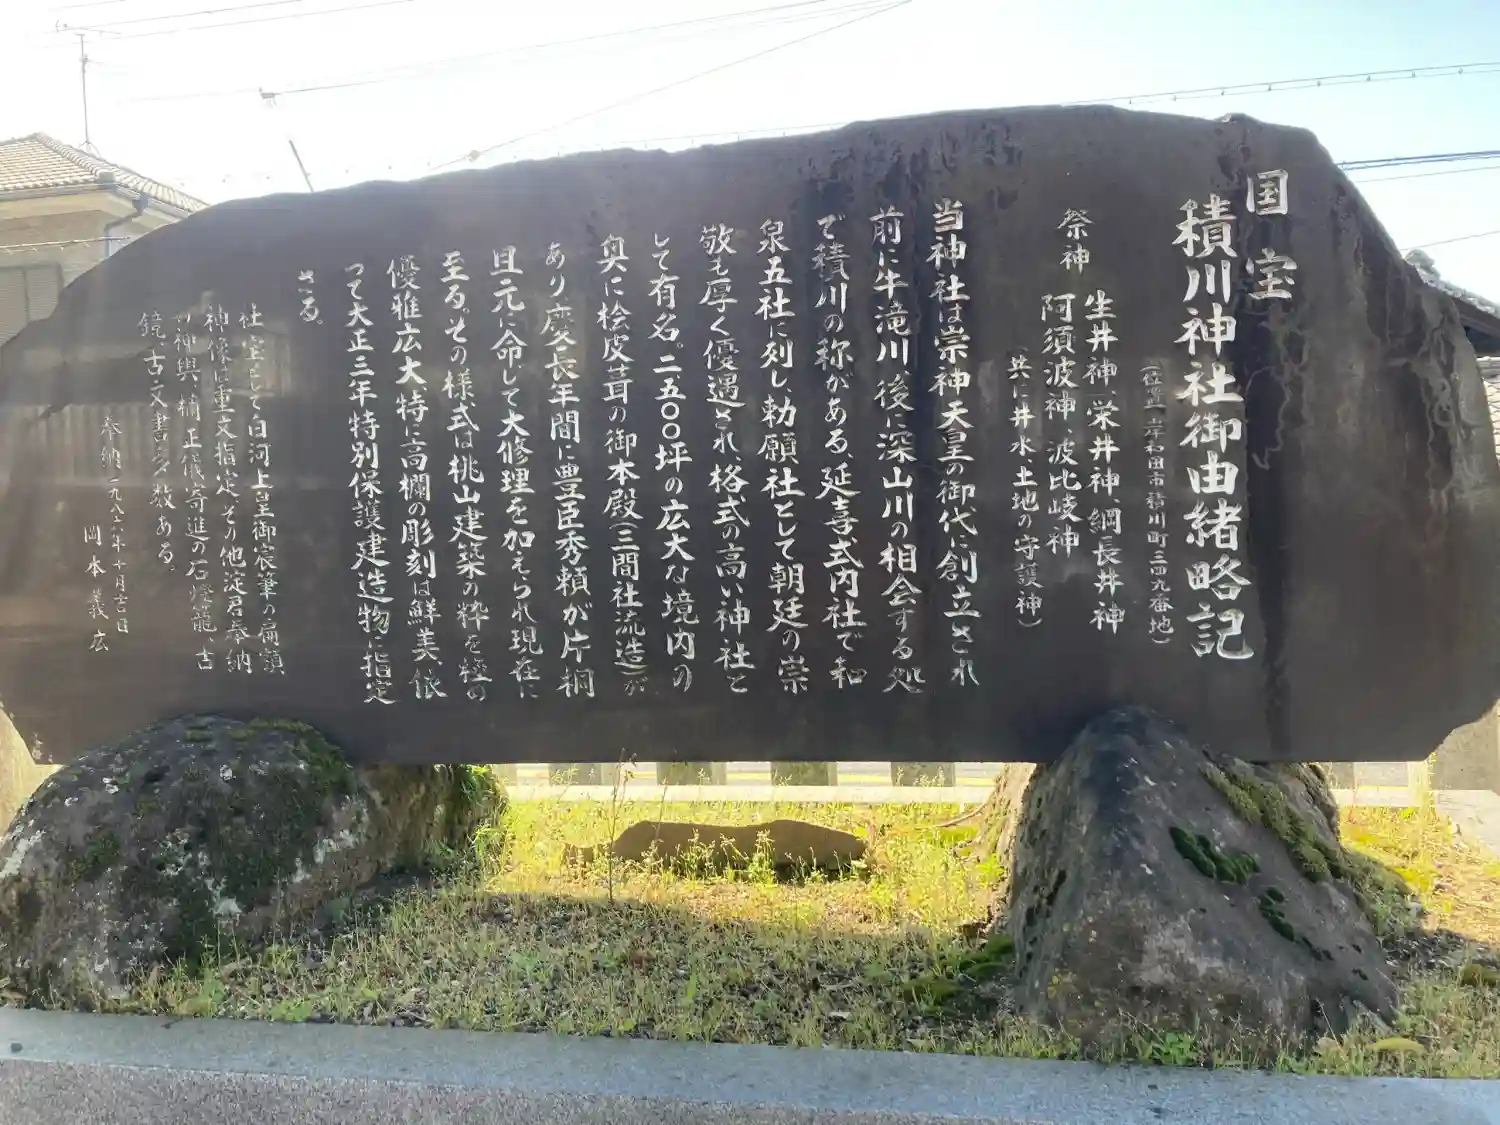 国宝
積川神社御由緒略記
(位置 岸和田市積川町三四九番地)
祭神 生井神、栄井神、綱長井神
阿須波神、波比岐神
(共に井水土地の守護神)
当神社は崇神天皇の御代に創立され
前に牛滝川後に深山川の相会する処
で積川の称がある、延喜式内社で和
泉五社に列し、勅願社として朝廷の崇
敬も厚く優遇され、格式の高い神社と
して有名。二五〇〇坪の広大な境内の
奥に桧皮葺の御本殿(三間社流造)が
あり慶長年間に豊臣秀頼が片桐
且元に命じて大修理を加えられ現在に
至る。その様式は桃山建築の粋を極め
優雅広大、特に高欄の彫刻は鮮美、依
って大正三年特別保護建造物に指定
さる。
社宝として白河上皇御宸筆の扁額、
神像は重文指定、その他淀君奉納
の神輿、楠正儀寄進の石燈籠、古
鏡、古文書多数ある。
奉納 一九八二年十月吉日
岡本義広